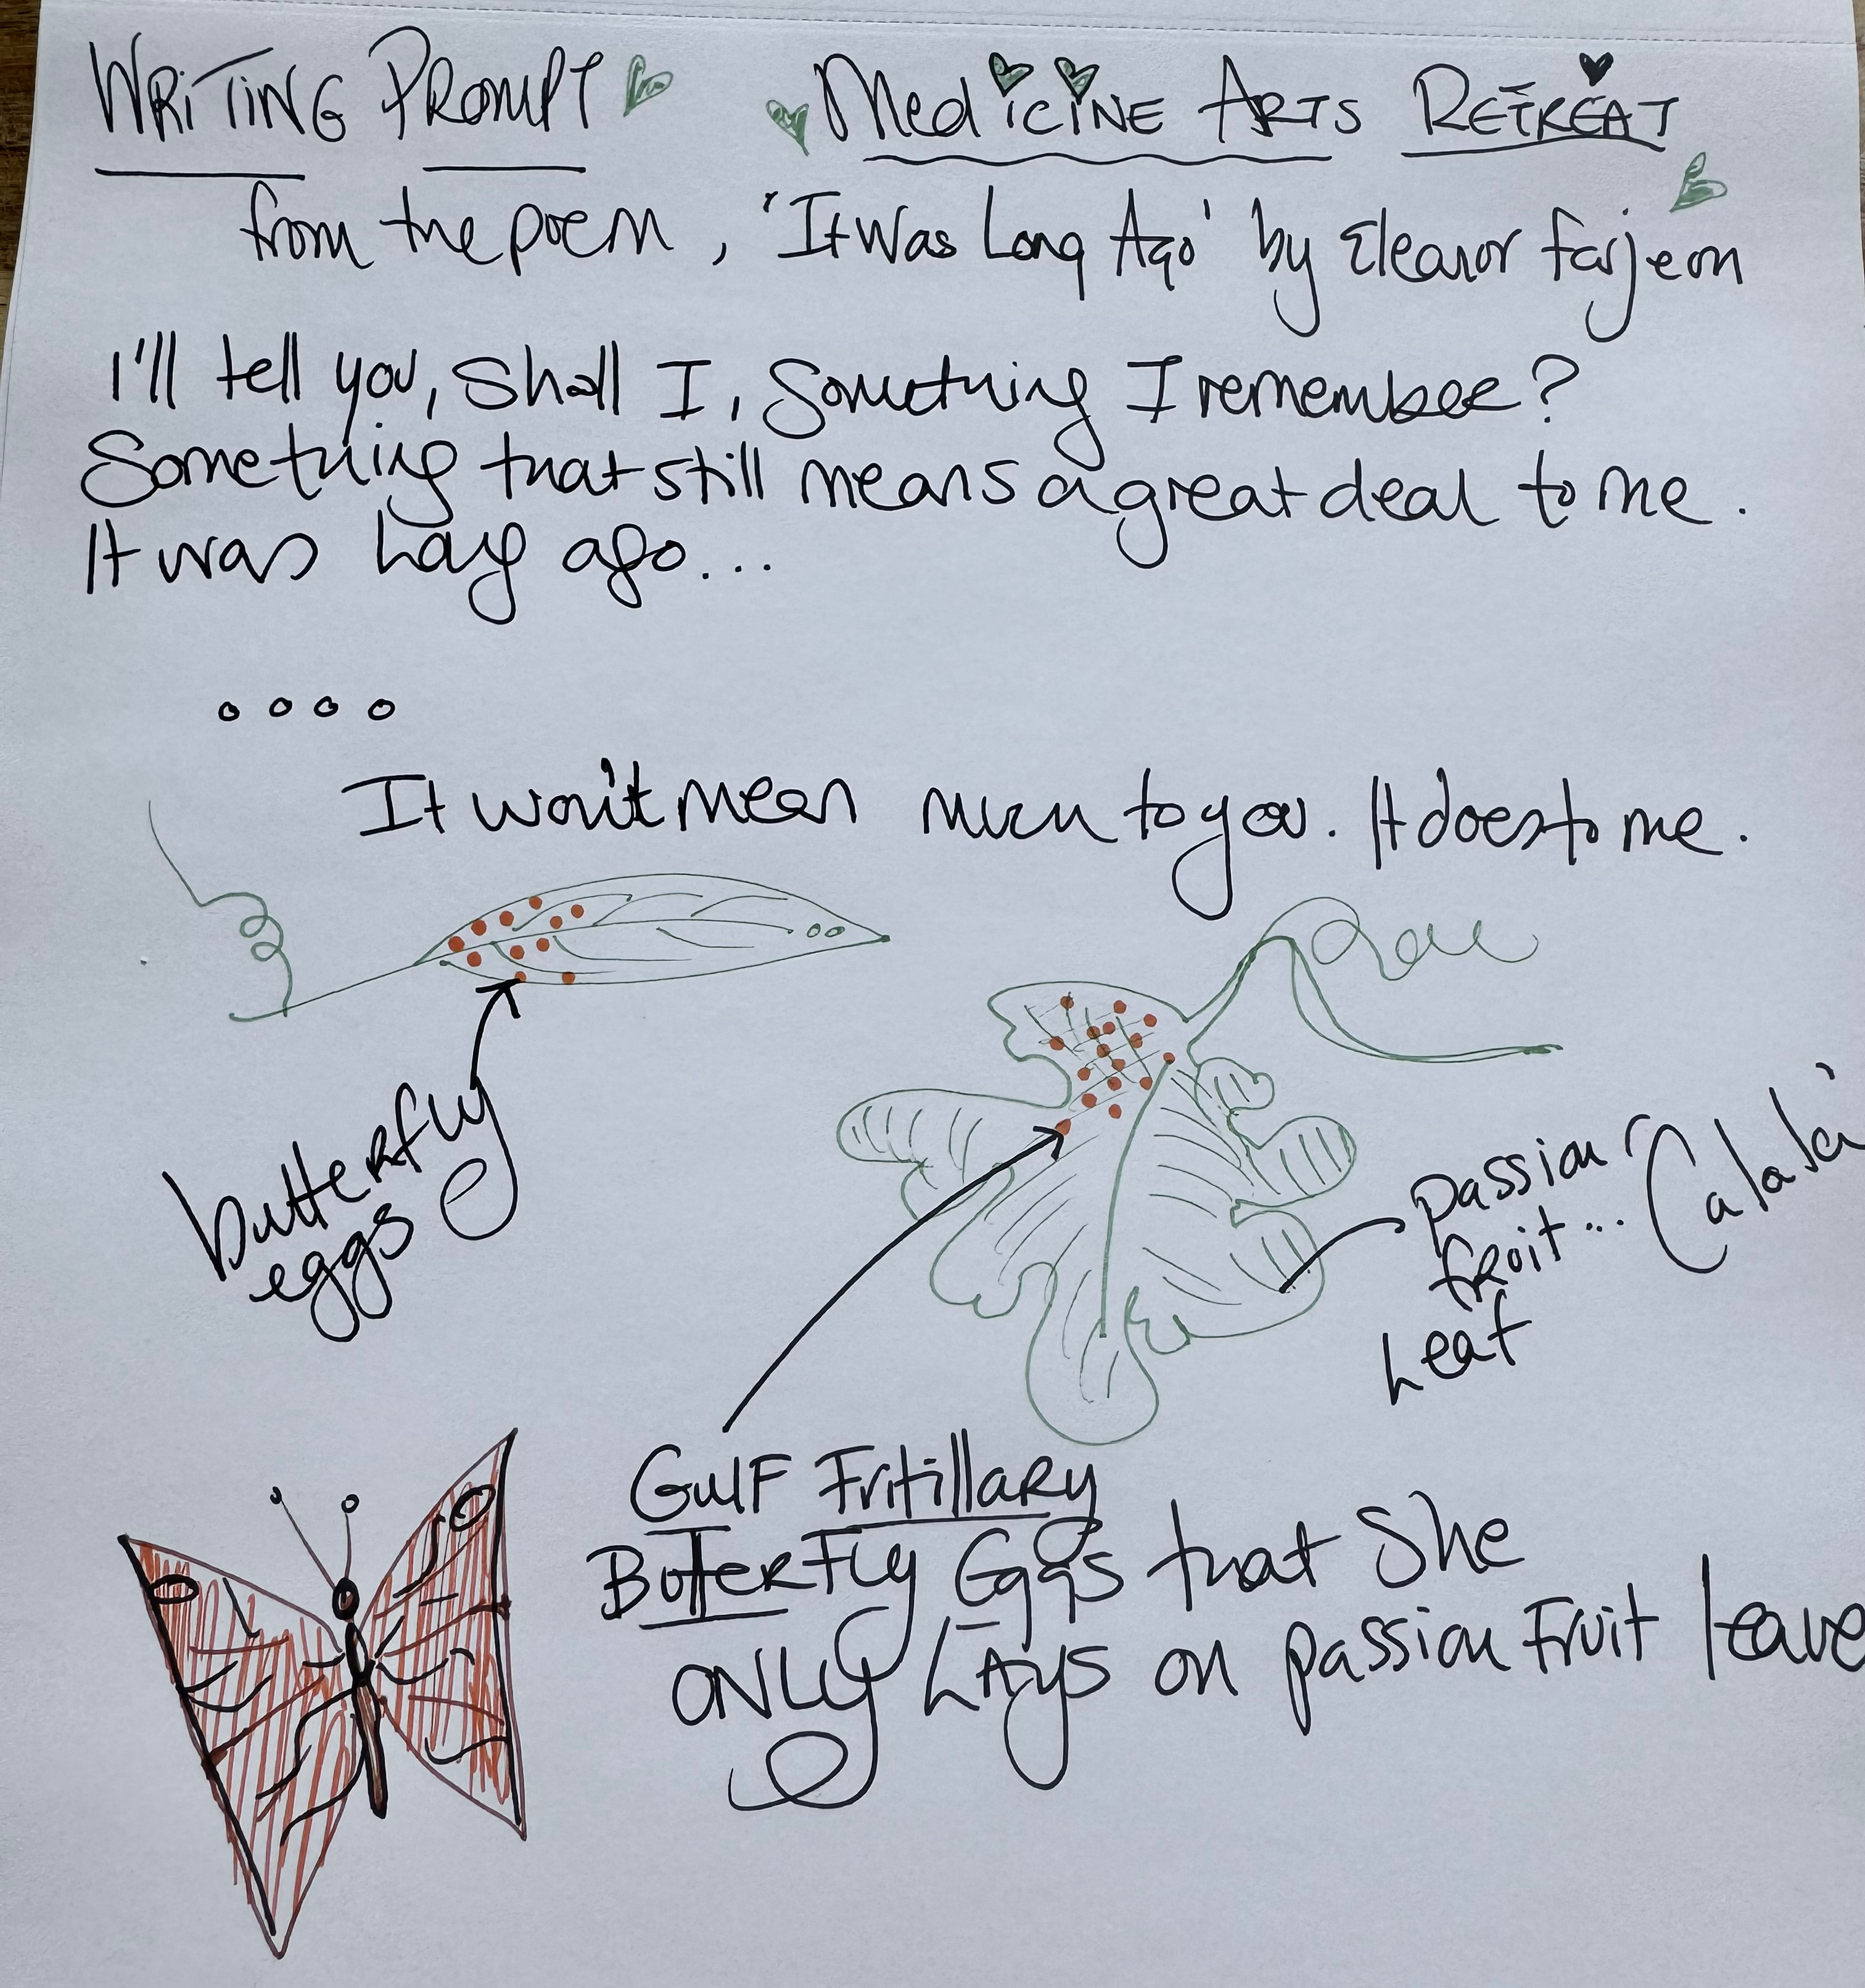 WRITING PROMPT
MEDICINE ARTS RETREAT
from the poem, 'It Was Long Ago' by Eleanor Farjeon
I'll tell you, shall I, something I remember?
Something that still means a great deal to me.
It was long ago...
It won't mean much to you. It does to me.
butterfly
eggs
passion
fruit... "Calala"
Leaf
Gulf Fritillary
Butterfly Eggs that She
ONLY LAYS on passion Fruit leave